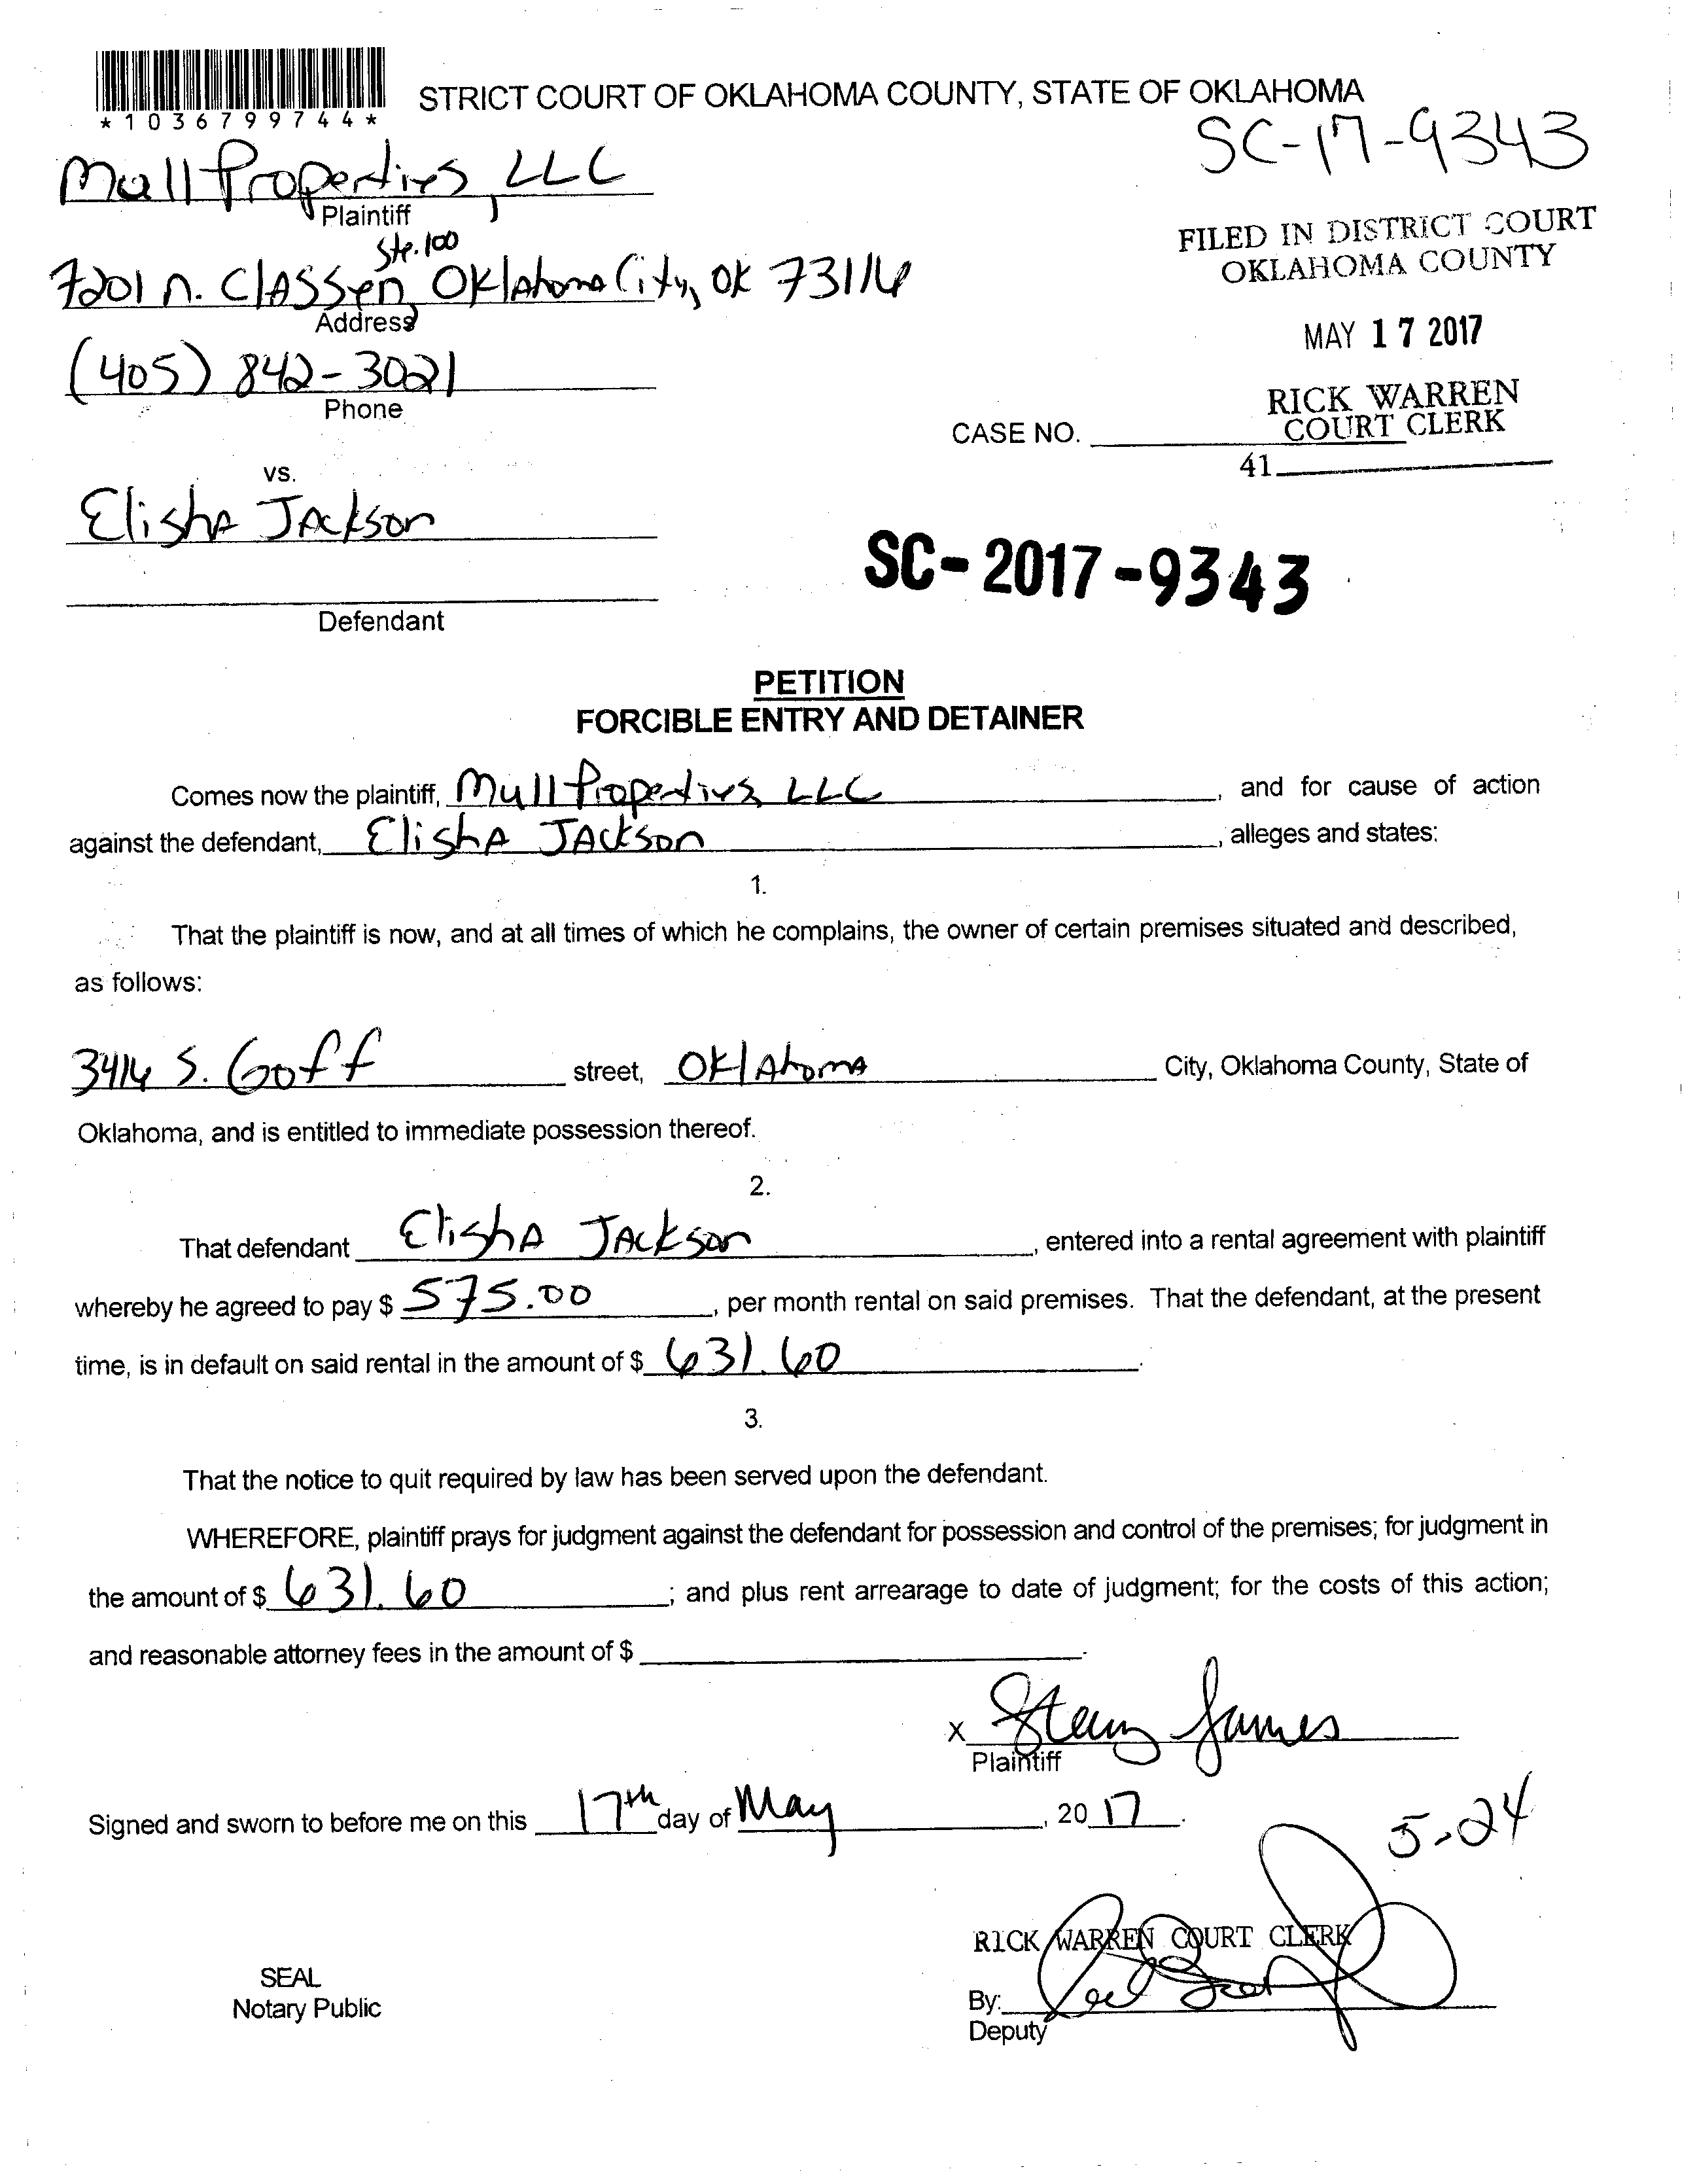 *1036799744*
STRICT COURT OF OKLAHOMA COUNTY, STATE OF OKLAHOMA
SC-17-9343
Mull Properties, LLC
Plaintiff
FILED IN DISTRICT COURT
OKLAHOMA COUNTY
Ste. 100
7201 N. Classen, Oklahoma City, OK 73116
Address
MAY 17 2017
(405) 842-3021
Phone
RICK WARREN
COURT CLERK
CASE NO.
41
vs.
Elisha Jackson
SC-2017-9343
Defendant
PETITION
FORCIBLE ENTRY AND DETAINER
Comes now the plaintiff, Mull Properties, LLC, and for cause of action
against the defendant, Elisha Jackson, alleges and states:
1.
That the plaintiff is now, and at all times of which he complains, the owner of certain premises situated and described,
as follows:
3416 S. Goff street, Oklahoma City, Oklahoma County, State of
Oklahoma, and is entitled to immediate possession thereof.
2.
That defendant Elisha Jackson, entered into a rental agreement with plaintiff
whereby he agreed to pay $ 575.00, per month rental on said premises. That the defendant, at the present
time, is in default on said rental in the amount of $ 631.60.
3.
That the notice to quit required by law has been served upon the defendant.
WHEREFORE, plaintiff prays for judgment against the defendant for possession and control of the premises; for judgment in
the amount of $ 631.60; and plus rent arrearage to date of judgment; for the costs of this action;
and reasonable attorney fees in the amount of $
X Stacy James
Plaintiff
Signed and sworn to before me on this 17th day of May, 2017.
5-24
RICK WARREN COURT CLERK
SEAL
Notary Public
By:
Deputy